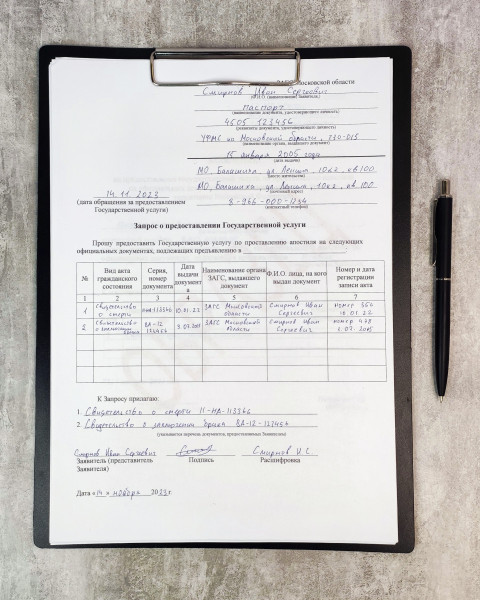 Московской области
Смирнов Иван Сергеевич
(Ф.И.О. (наименование) Заявителя)
паспорт
(наименование документа, удостоверяющего личность)
4505 123456
(реквизиты документа, удостоверяющего личность)
УФМС по Московской области,
(наименование органа, выдавшего документ)
15 января 2005 года
(дата выдачи)
МО, Балашиха, ул. Ленина, кв 100.
МО, Балашиха, ул. Ленина, кв. 100.
(почтовый адрес)
14.11.2023
8-966-000-1234
(дата обращения за предоставлением
Государственной услуги)
(контактный телефон)
Запрос о предоставлении Государственной услуги
Прошу предоставить Государственную услугу по проставлению апостиля на следующих
официальных документах, подлежащих предъявлению в
№ Вид акта гражданского состояния Серия, номер документа Дата выдачи документа Наименование органа ЗАГС, выдавшего документ Ф.И.О. лица, на кого выдан документ Номер и дата регистрации записи акта
1 2 3 4 5 6 7
1 Свидетельство о смерти 10.01.22 ЗАГС Московской области Смирнов Иван Сергеевич номер
2 Свидетельство о заключении брака ЗАГС Московской области Смирнов Иван Сергеевич номер
К Запросу прилагаю:
1. Свидетельство о смерти II-МД-113346
2. Свидетельство о заключении брака
(указывается перечень документов, предоставляемых Заявителем)
Смирнов Иван Сергеевич Смирнов И.С.
Заявитель (представитель Подпись Расшифровка
Заявителя)
Дата «14» ноября 2023 г.